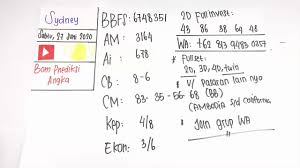 Sydney
Sabtu, 27 Juni 2020
Bom Prediksi
Angka
BBFS: 6748351
AM: 3164
Ai: 678
CB: 8-6
CM: 83-35-56-68 (BB)
Kep: 4/8
Ekor: 3/6
2D Full invest:
43 86 38 64 48
WA: +62 813 9483 0357
Fullset:
2D, 3D, 4D, twin
u/ pasaran lain nyo
(CAMBODIA s/d California
* Join grup WA